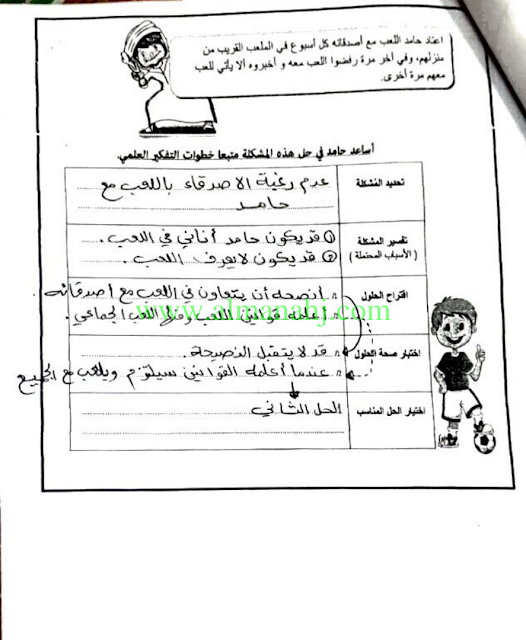 اعتاد حامد اللعب مع أصدقائه كل أسبوع في الملعب القريب من
منزلهم، وفي آخر مرة رفضوا اللعب معه و أخبروه ألا يأتي للعب
معهم مرة أخرى.
أساعد حامد في حل هذه المشكلة متبعا خطوات التفكير العلمي.
تحديد المشكلة
عدم رغبة الاصدقاء باللعب مع
حامد
تفسير المشكلة
(الأسباب المحتملة)
① قد يكون حامد أناني في اللعب.
② قد يكون لا يعرف اللعب.
اقتراح الحلول
أنصحه أن يتعاون في اللعب مع أصدقائه.
أعلمه قوانين اللعب اللعب الجماعي.
www.almanahj.com
اختبار صحة الحلول
قد لا يتقبل النصيحة.
عندما أعلمه القوانين سيلتزم ويلعب مع الجميع
اختيار الحل المناسب
الحل الثاني